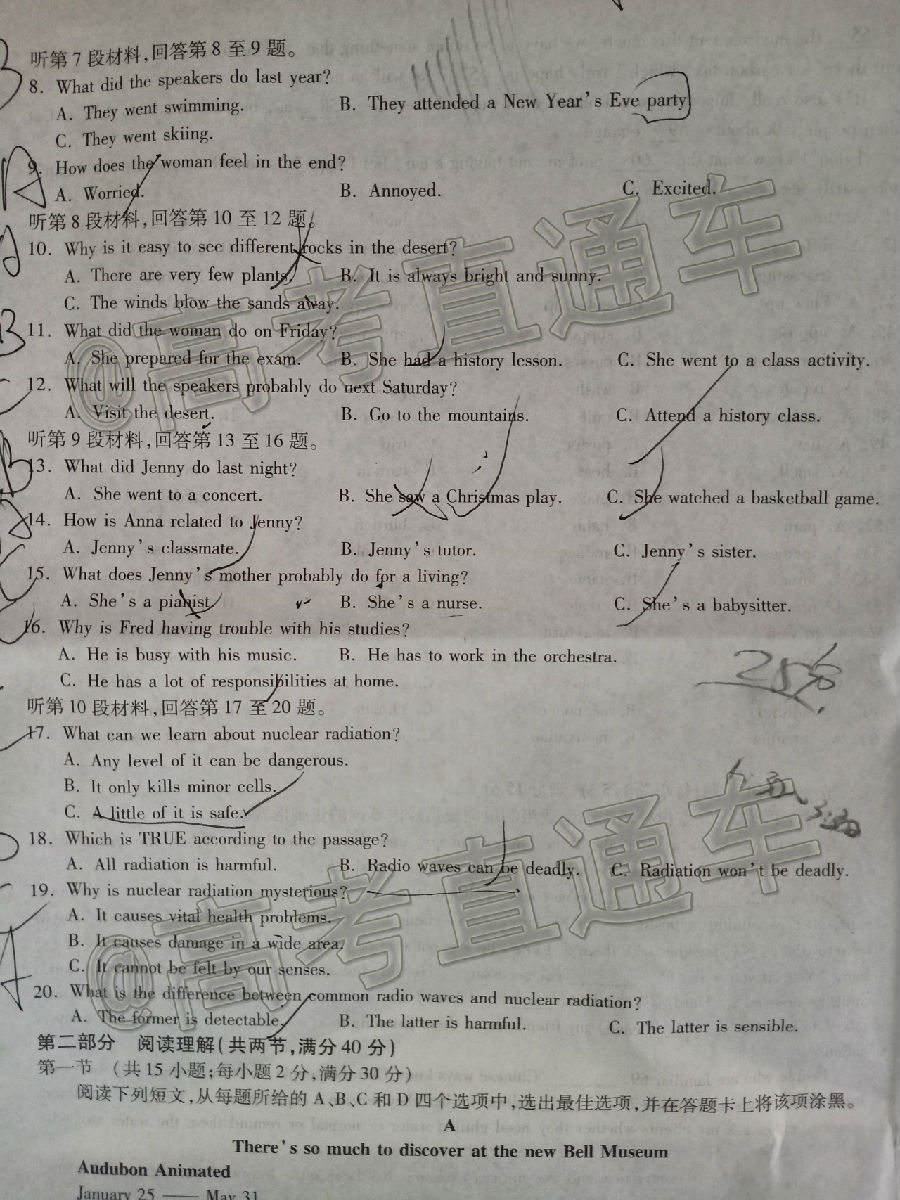 听第 7 段材料,回答第 8 至 9 题。
8. What did the speakers do last year?
A. They went swimming. B. They attended a New Year's Eve party
C. They went skiing.
9. How does the woman feel in the end?
A. Worried. B. Annoyed. C. Excited.
听第 8 段材料,回答第 10 至 12 题。
10. Why is it easy to see different rocks in the desert?
A. There are very few plants. B. It is always bright and sunny.
C. The winds blow the sands away.
B 11. What did the woman do on Friday?
A. She prepared for the exam. B. She had a history lesson. C. She went to a class activity.
12. What will the speakers probably do next Saturday?
A. Visit the desert. B. Go to the mountains. C. Attend a history class.
听第 9 段材料,回答第 13 至 16 题。
B 13. What did Jenny do last night?
A. She went to a concert. B. She saw a Christmas play. C. She watched a basketball game.
14. How is Anna related to Jenny?
A. Jenny's classmate. B. Jenny's tutor. C. Jenny's sister.
15. What does Jenny's mother probably do for a living?
A. She's a pianist B. She's a nurse. C. She's a babysitter.
16. Why is Fred having trouble with his studies?
A. He is busy with his music. B. He has to work in the orchestra.
C. He has a lot of responsibilities at home.
听第 10 段材料,回答第 17 至 20 题。
17. What can we learn about nuclear radiation?
A. Any level of it can be dangerous.
B. It only kills minor cells.
C. A little of it is safe.
18. Which is TRUE according to the passage?
A. All radiation is harmful. B. Radio waves can be deadly. C. Radiation won't be deadly.
19. Why is nuclear radiation mysterious?
A. It causes vital health problems.
B. It causes damage in a wide area.
C. It cannot be felt by our senses.
A 20. What is the difference between common radio waves and nuclear radiation?
A. The former is detectable. B. The latter is harmful. C. The latter is sensible.
第二部分 阅读理解(共两节,满分 40 分)
第一节 (共 15 小题;每小题 2 分,满分 30 分)
阅读下列短文,从每题所给的 A、B、C 和 D 四个选项中,选出最佳选项,并在答题卡上将该项涂黑。
A
There's so much to discover at the new Bell Museum
Audubon Animated
January 25 —— May 31
@高考直通车
@高考直通车